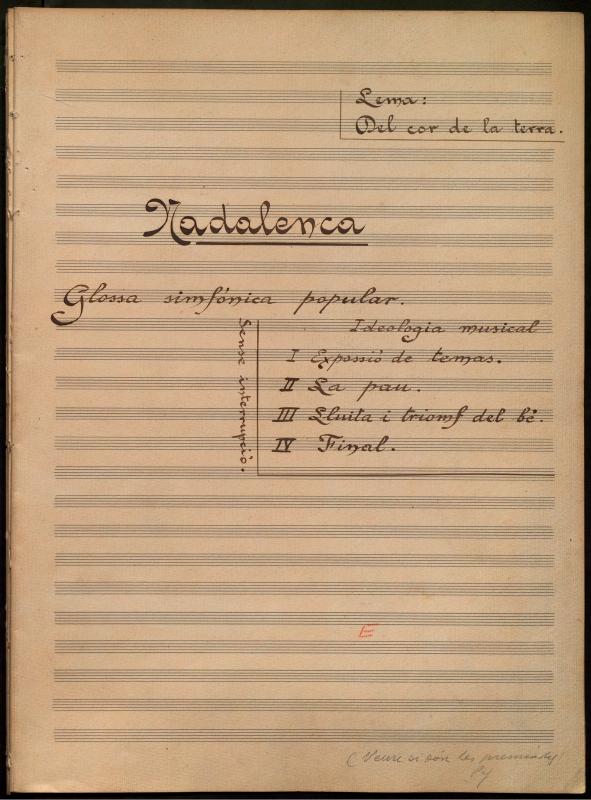 Lema:
Del cor de la terra.
Nadalenca
Glossa simfónica popular.
Ideologia musical
Sense interrupció.
I Exposició de temas.
II La pau.
III Lluita i triomf del bé.
IV Final.
E
(Veure si són les premiades)